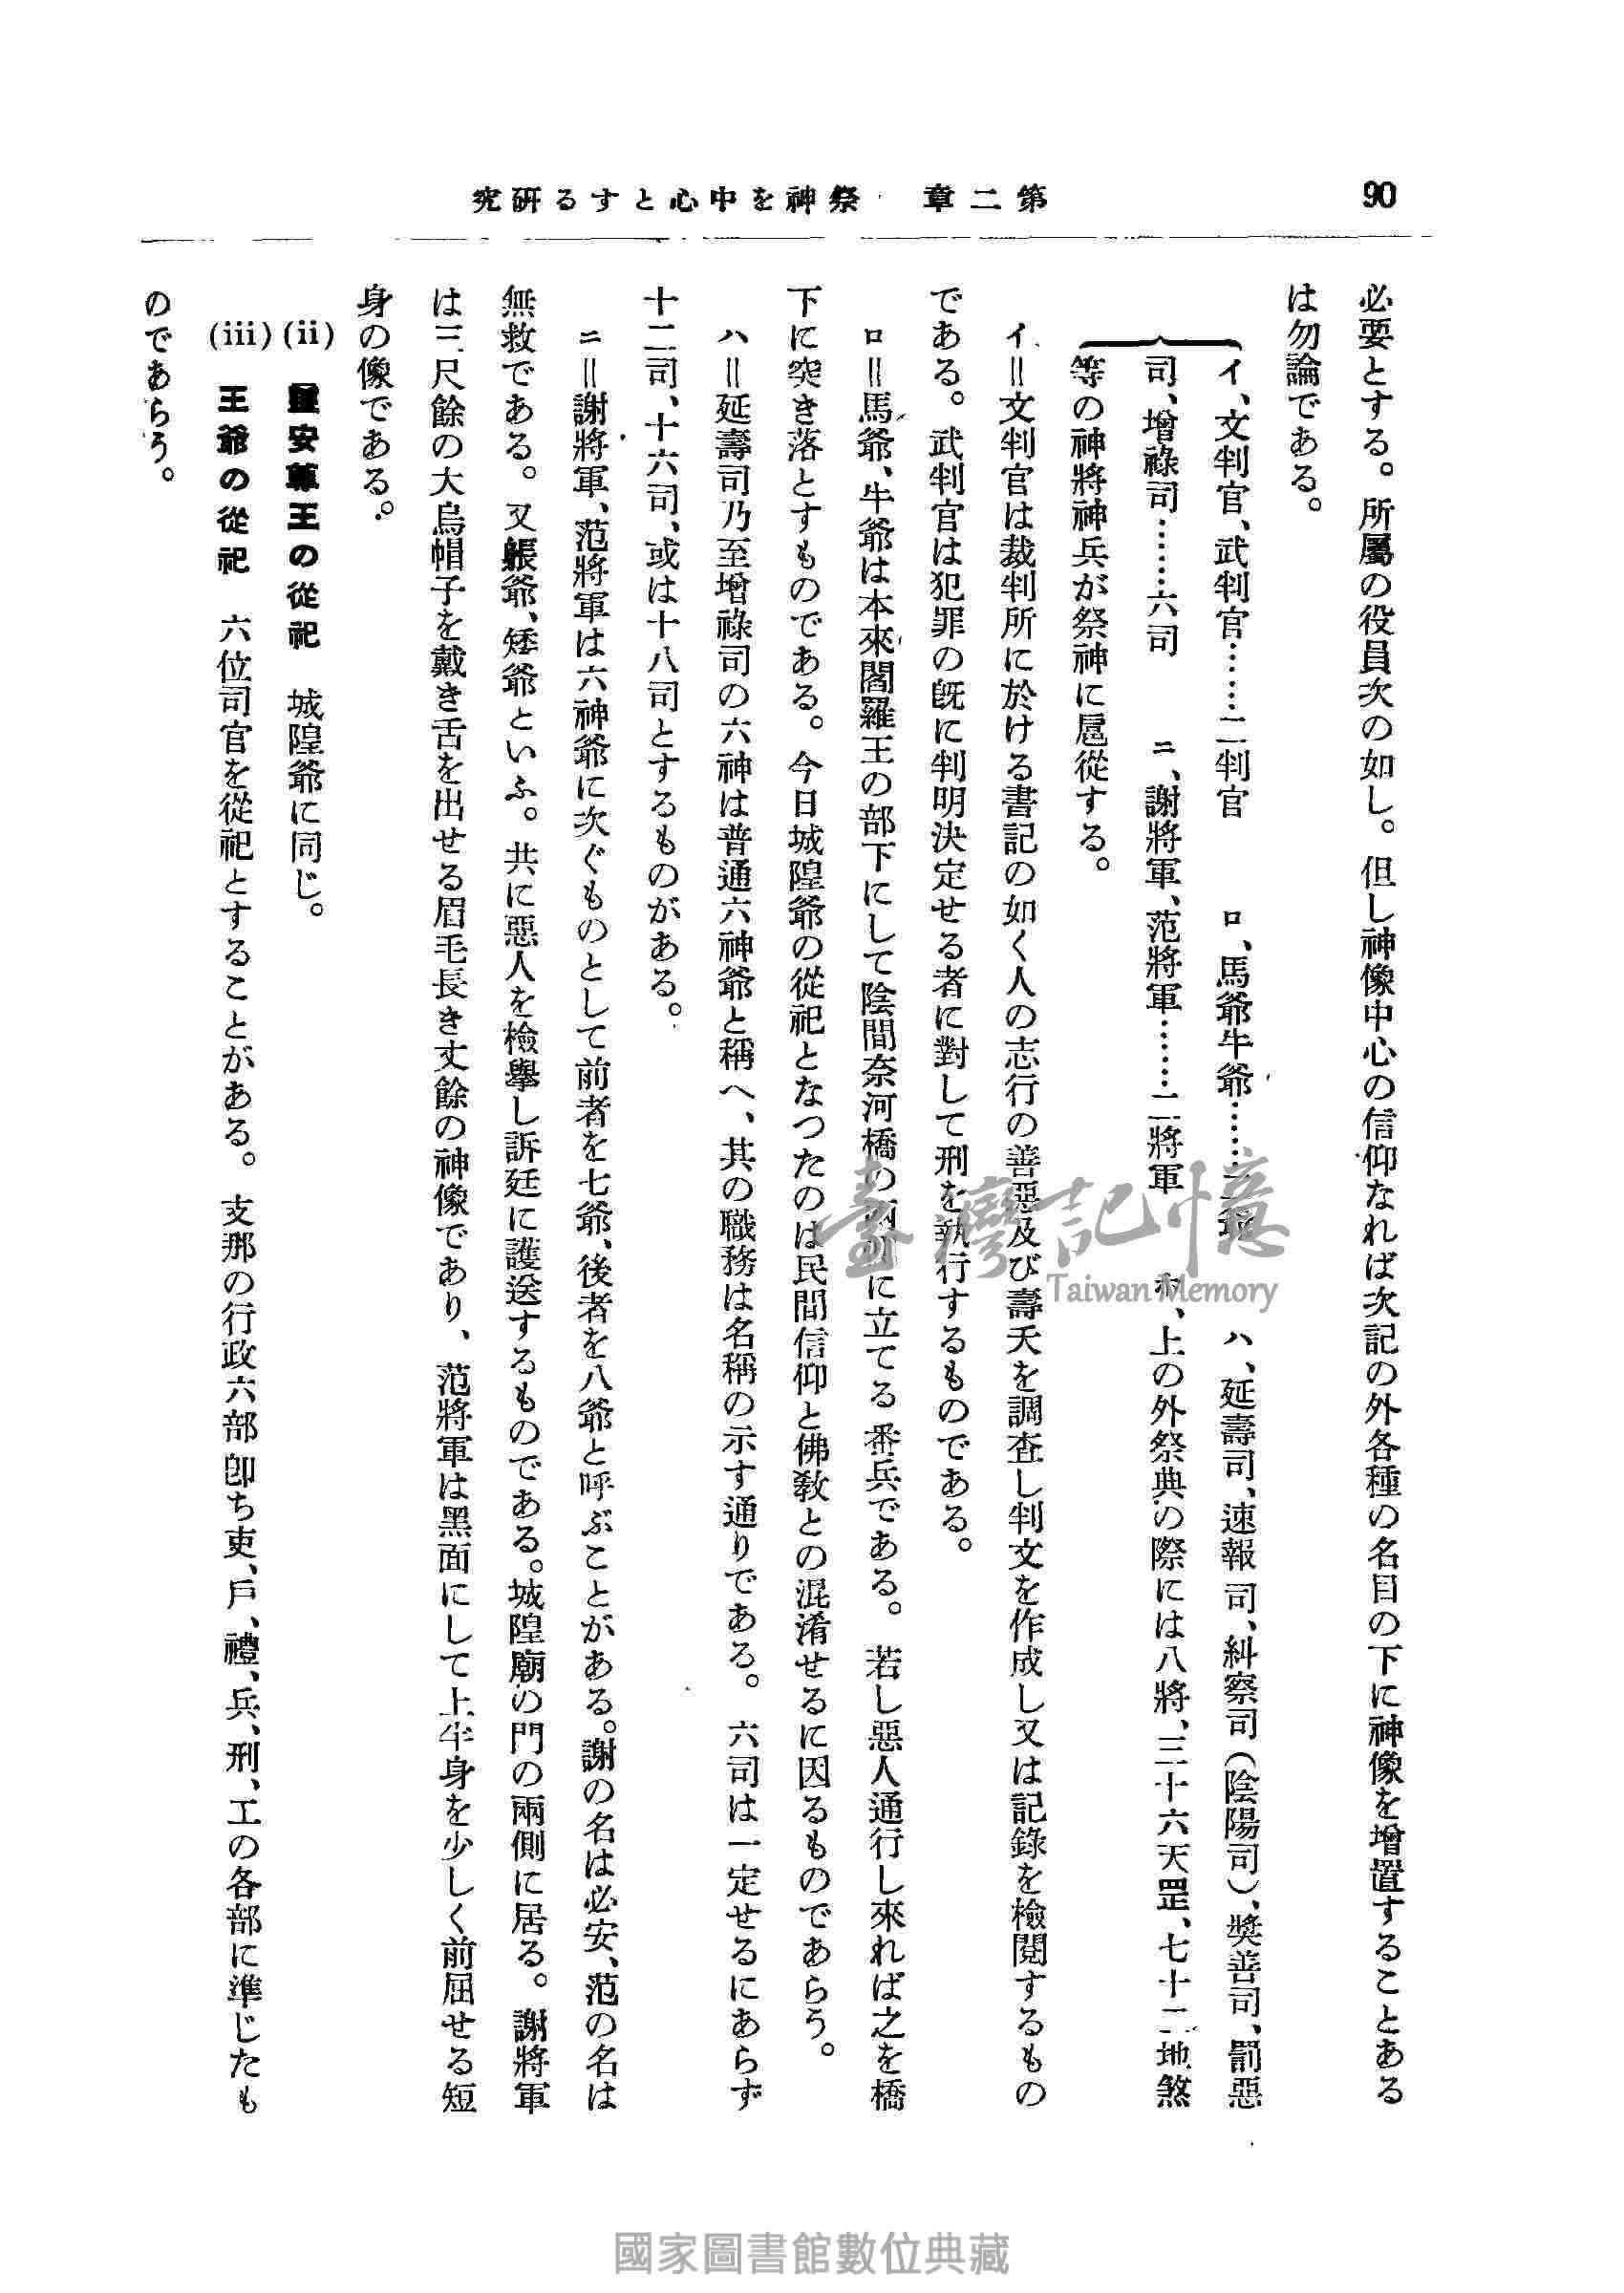 90
第二章　祭神を中心とする硏究
必要とする。所屬の役員次の如し。但し神像中心の信仰なれば次記の外各種の名目の下に神像を增置することある
は勿論である。
イ、文判官、武判官……二判官　ロ、馬爺牛爺……二爺　ハ、延壽司、速報司、糾察司（陰陽司）、奬善司、罰惡
司、增祿司……六司　ニ、謝將軍、范將軍……二將軍　ホ、上の外祭典の際には八將、三十六天罡、七十二地煞
等の神將神兵が祭神に扈從する。
イ＝文判官は裁判所に於ける書記の如く人の志行の善惡及び壽夭を調査し判文を作成し又は記錄を檢閱するもの
である。武判官は犯罪の旣に判明決定せる者に對して刑を執行するものである。
ロ＝馬爺、牛爺は本來閻羅王の部下にして陰間奈河橋の兩側に立てる番兵である。若し惡人通行し來れば之を橋
下に突き落とすものである。今日城隍爺の從祀となつたのは民間信仰と佛敎との混淆せるに因るものであらう。
ハ＝延壽司乃至增祿司の六神は普通六神爺と稱へ、其の職務は名稱の示す通りである。六司は一定せるにあらず
十二司、十六司、或は十八司とするものがある。
ニ＝謝將軍、范將軍は六神爺に次ぐものとして前者を七爺、後者を八爺と呼ぶことがある。謝の名は必安、范の名は
無救である。又躼爺、矮爺といふ。共に惡人を檢擧し訴廷に護送するものである。城隍廟の門の兩側に居る。謝將軍
は三尺餘の大烏帽子を戴き舌を出せる眉毛長き丈餘の神像であり、范將軍は黑面にして上半身を少しく前屈せる短
身の像である。
(ii)　靈安尊王の從祀　城隍爺に同じ。
(iii)　王爺の從祀　六位司官を從祀とすることがある。支那の行政六部卽ち吏、戶、禮、兵、刑、工の各部に準じたも
のであらう。
臺灣記憶
Taiwan Memory
國家圖書館數位典藏